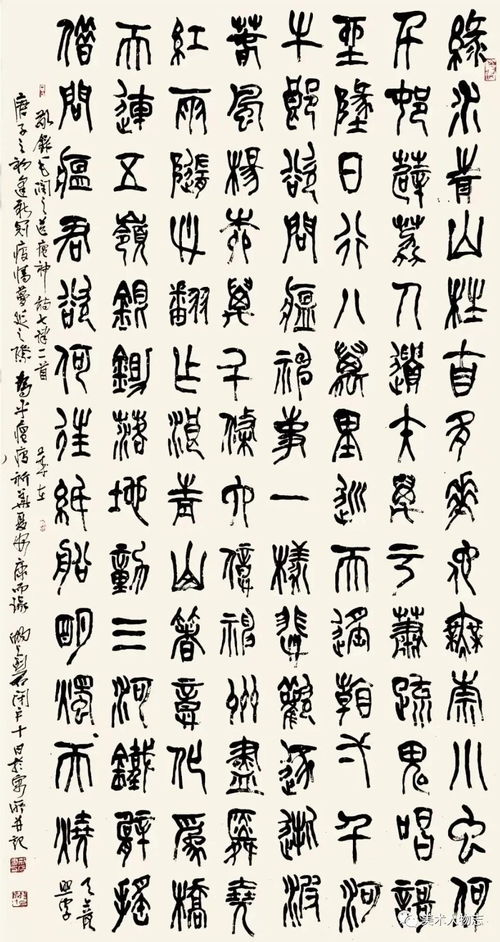 綠水青山枉自多華佗無奈小虫何
千村薜荔人遺矢萬戶蕭疏鬼唱謌
坐地日行八萬里巡天遙看一千河
牛郎欲問瘟神事一樣悲歡逐逝波
春風楊柳萬千條六億神州盡舜堯
紅雨隨心翻作浪青山著意化為橋
天連五嶺銀鋤落地動三河鐵臂搖
借問瘟君欲何往紙船明燭天燒
敬錄毛潤之送瘟神詩七律二首
庚子之初逢新冠疫情蔓延之際 瘟疫祈華夏安康而錄 閉戶十日於 並記
美术人物志